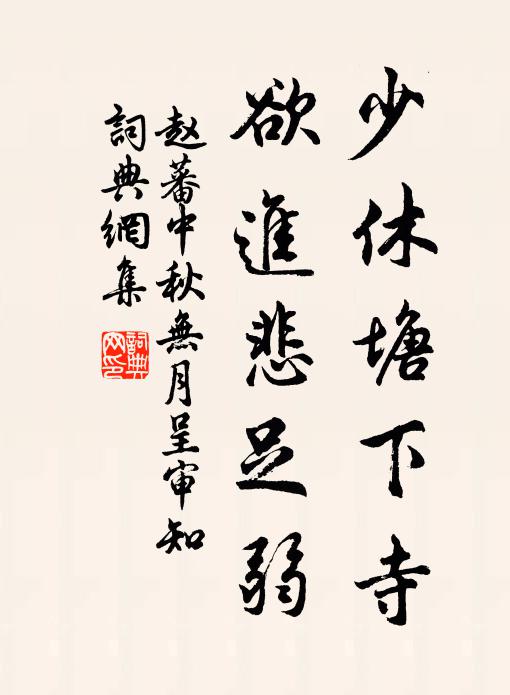 少休塘下寺
欲進悲足弱
赵蕃中秋無月呈审知
詞典網集
詞典
网印